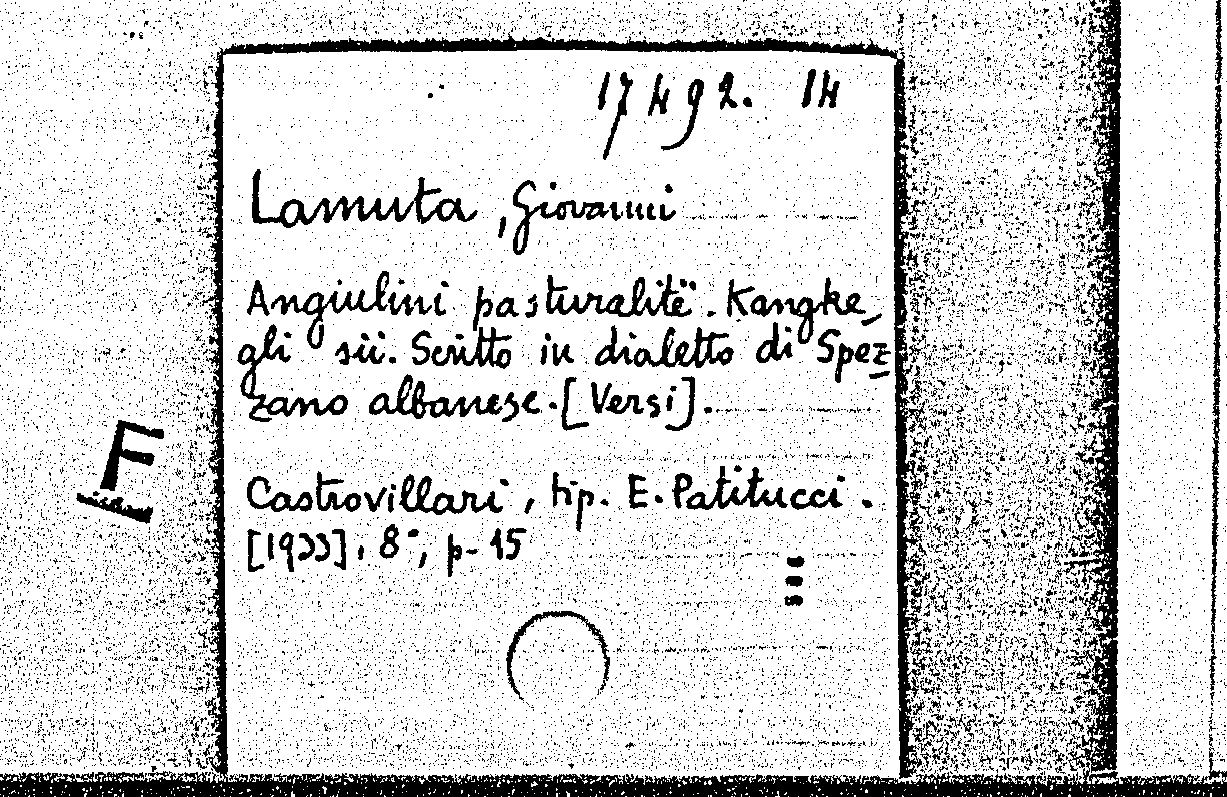 17492. 14
Lamuta, Giovanni
Angiulini pasturalitë. Kangke
gli sii. Scritto in dialetto di Spez
zano albanese. [Versi].
F
Castrovillari, tip. E. Patitucci.
[1933], 8°, p. 15